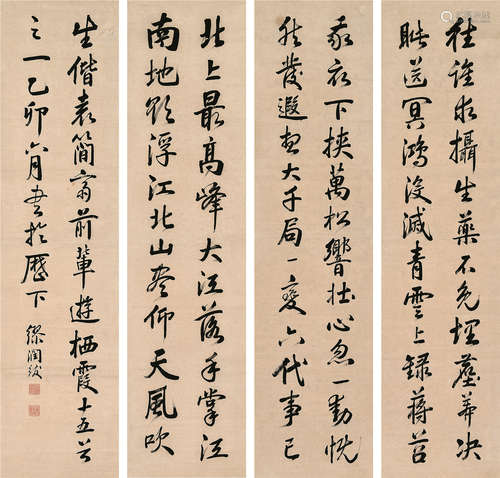 往誰求攝生藥不免埋塵莽決
眥送冥鴻沒滅青雲上錄蔣苕
我衣下挾萬松響壯心忽一動恍
然發遐想大千局一變六代事已
北上最高峰大江落手掌江
南地欲浮江北山盡仰天風吹
生偕袁簡齋前輩遊栖霞十五首
之一乙卯六月書於歷下
繆潤紱